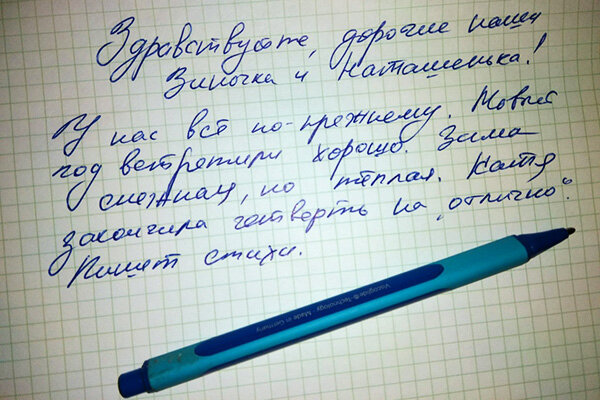 Здравствуйте, дорогие наши
Зиночка и Наташенька!
У нас всё по-прежнему. Новый
год встретили хорошо. Зима
снежная, но тёплая. Катя
закончила четверть на „отлично“.
Пишет стихи.
Viscoglide®-Technology Made in Germany